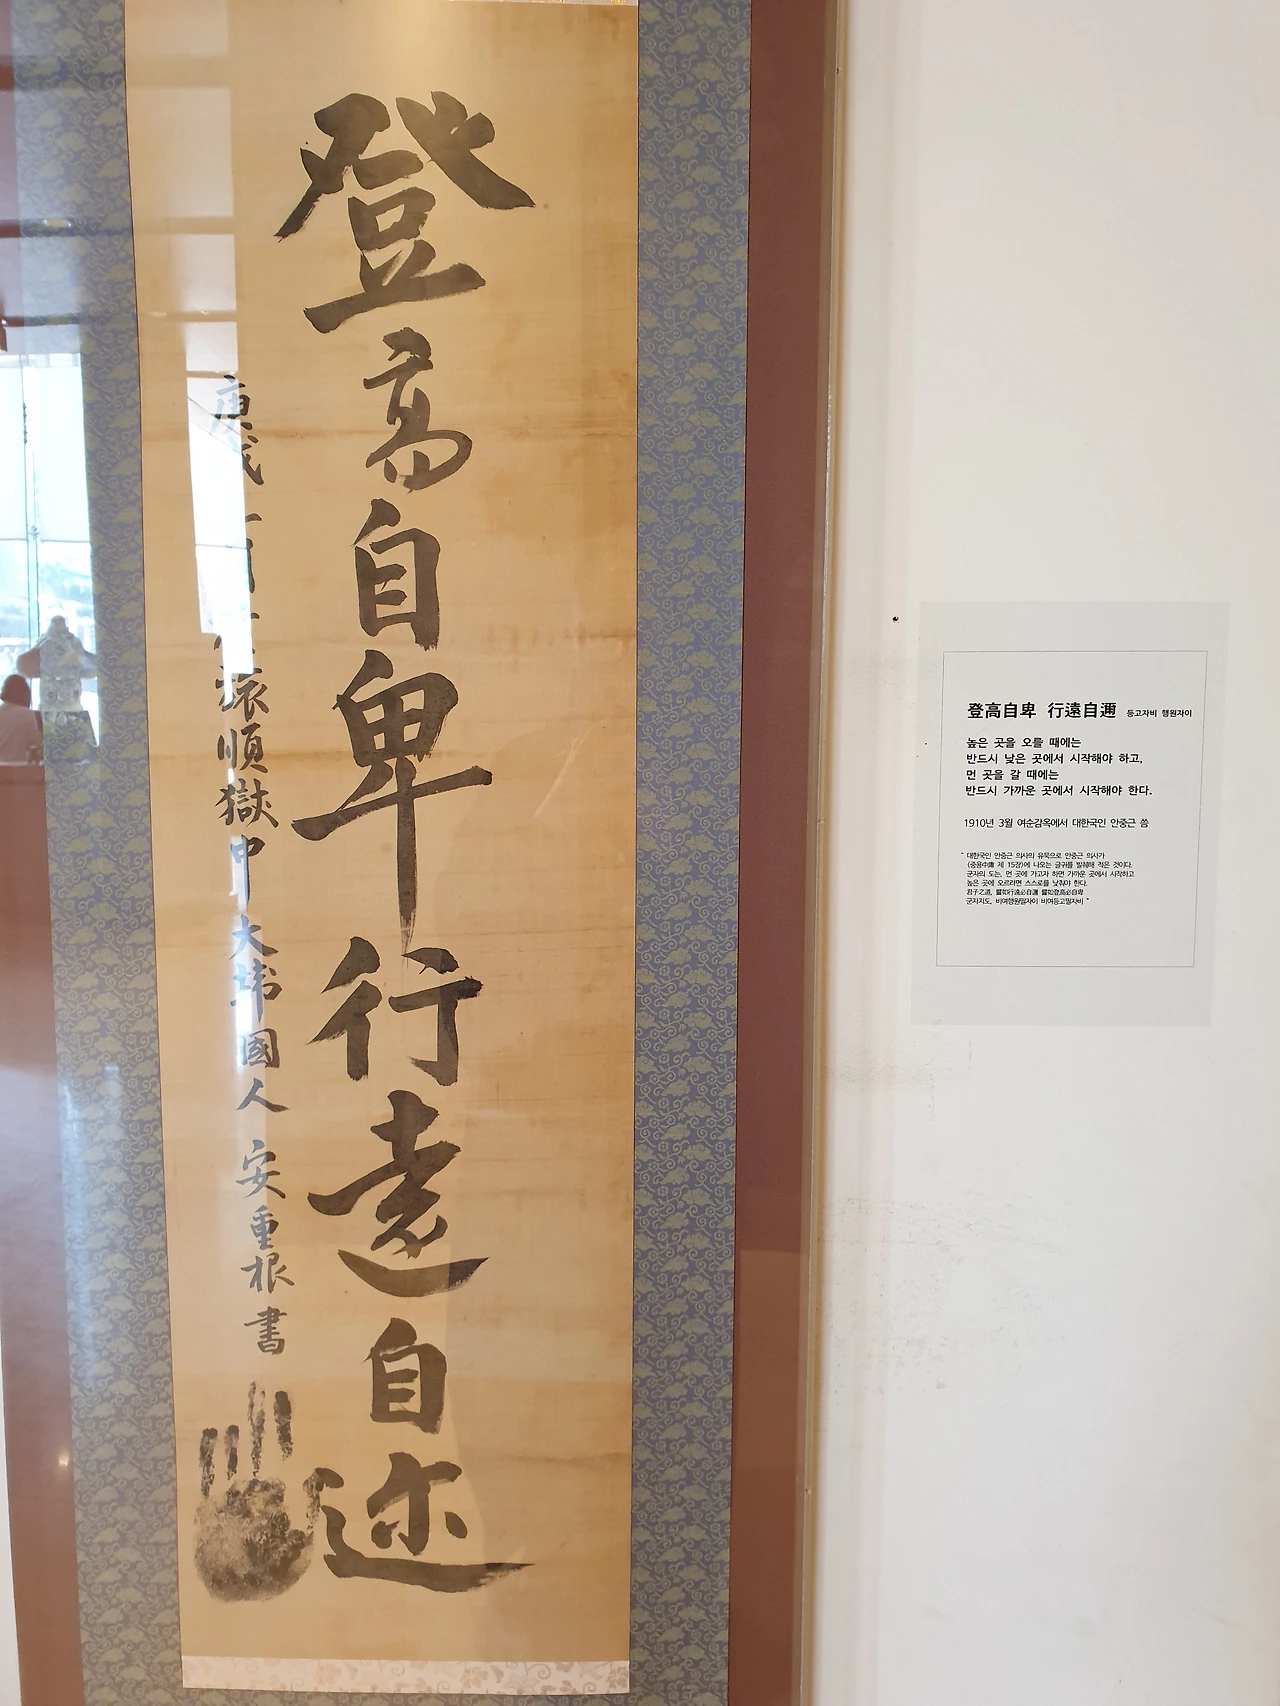 登高自卑行遠自迩
庚戌三月 於旅順獄中 大韓國人 安重根 書
登高自卑 行遠自邇 등고자비 행원자이
높은 곳을 오를 때에는
반드시 낮은 곳에서 시작해야 하고,
먼 곳을 갈 때에는
반드시 가까운 곳에서 시작해야 한다.
1910년 3월 여순감옥에서 대한국인 안중근 씀
" 대한국인 안중근 의사의 유묵으로 안중근 의사가
(중용中庸 제 15장)에 나오는 글귀를 발췌해 적은 것이다.
군자의 도는, 먼 곳에 가고자 하면 가까운 곳에서 시작하고
높은 곳에 오르려면 스스로를 낮춰야 한다.
君子之道, 譬如行遠必自邇 譬如登高必自卑
군자지도, 비여행원필자이 비여등고필자비 "